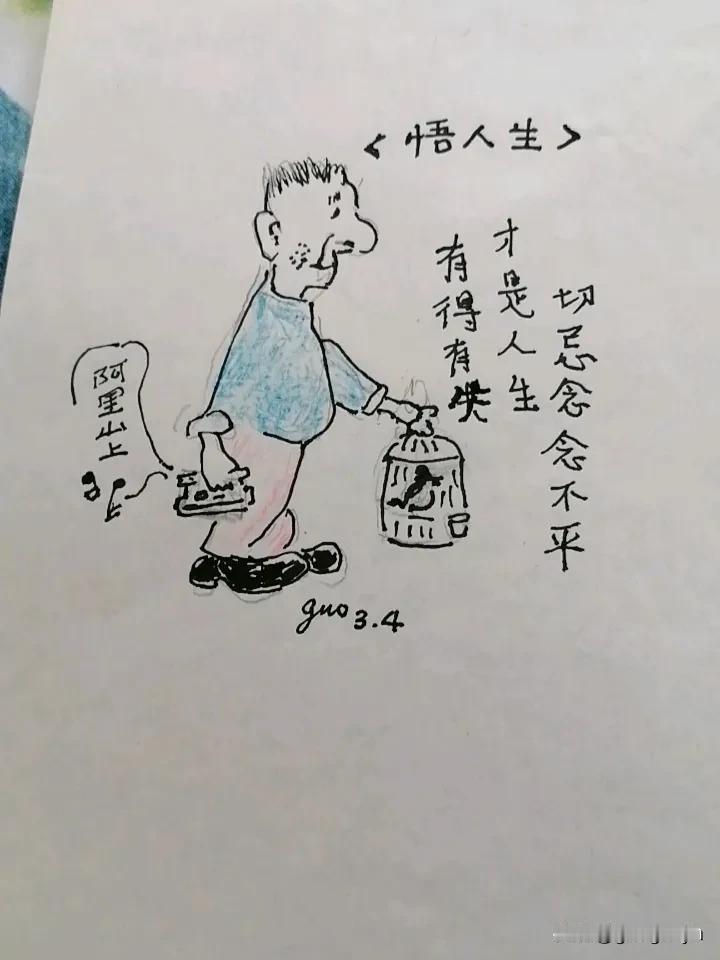 <悟人生>
有得有失
才是人生
切忌念念不平
阿里山上
guo 3.4